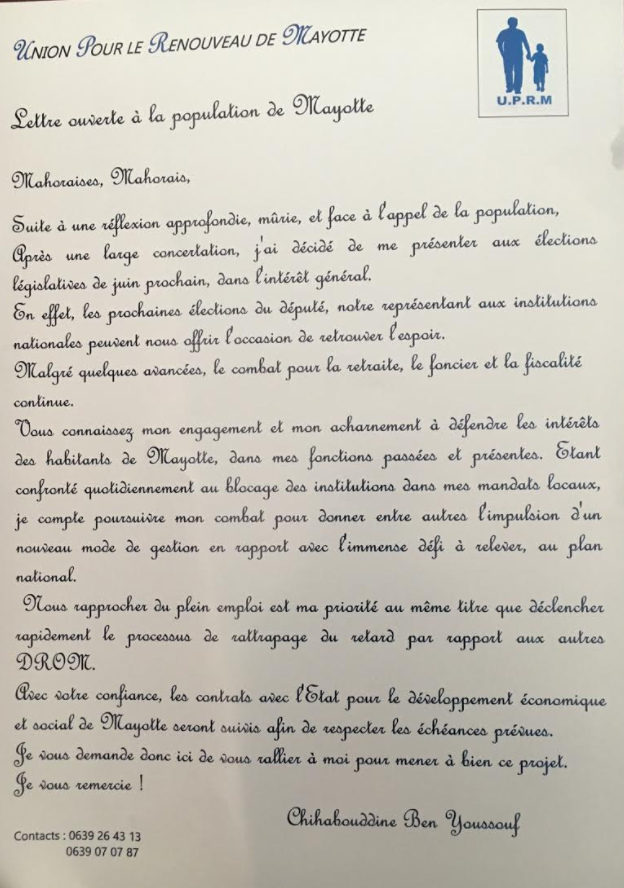 Union Pour le Renouveau de Mayotte
U.P.R.M
Lettre ouverte à la population de Mayotte
Mahoraises, Mahorais,
Suite à une réflexion approfondie, mûrie, et face à l'appel de la population,
Après une large concertation, j'ai décidé de me présenter aux élections
législatives de juin prochain, dans l'intérêt général.
En effet, les prochaines élections du député, notre représentant aux institutions
nationales peuvent nous offrir l'occasion de retrouver l'espoir.
Malgré quelques avancées, le combat pour la retraite, le foncier et la fiscalité
continue.
Vous connaissez mon engagement et mon acharnement à défendre les intérêts
des habitants de Mayotte, dans mes fonctions passées et présentes. Etant
confronté quotidiennement au blocage des institutions dans mes mandats locaux,
je compte poursuivre mon combat pour donner entre autres l'impulsion d'un
nouveau mode de gestion en rapport avec l'immense défi à relever, au plan
national.
Nous rapprocher du plein emploi est ma priorité au même titre que déclencher
rapidement le processus de rattrapage du retard par rapport aux autres
DROM.
Avec votre confiance, les contrats avec l'Etat pour le développement économique
et social de Mayotte seront suivis afin de respecter les échéances prévues.
Je vous demande donc ici de vous rallier à moi pour mener à bien ce projet.
Je vous remercie !
Chihabouddine Ben Youssouf
Contacts : 0639 26 43 13
0639 07 07 87